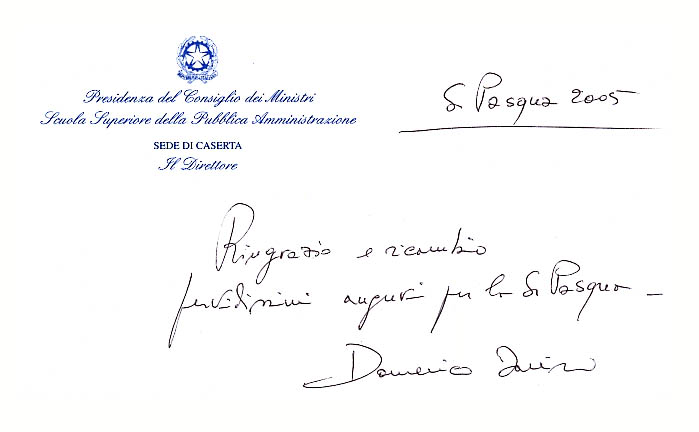 Presidenza del Consiglio dei Ministri
Scuola Superiore della Pubblica Amministrazione
SEDE DI CASERTA
Il Direttore
S. Pasqua 2005
Ringrazio e ricambio
fervidissimi auguri per la S. Pasqua –
Domenico